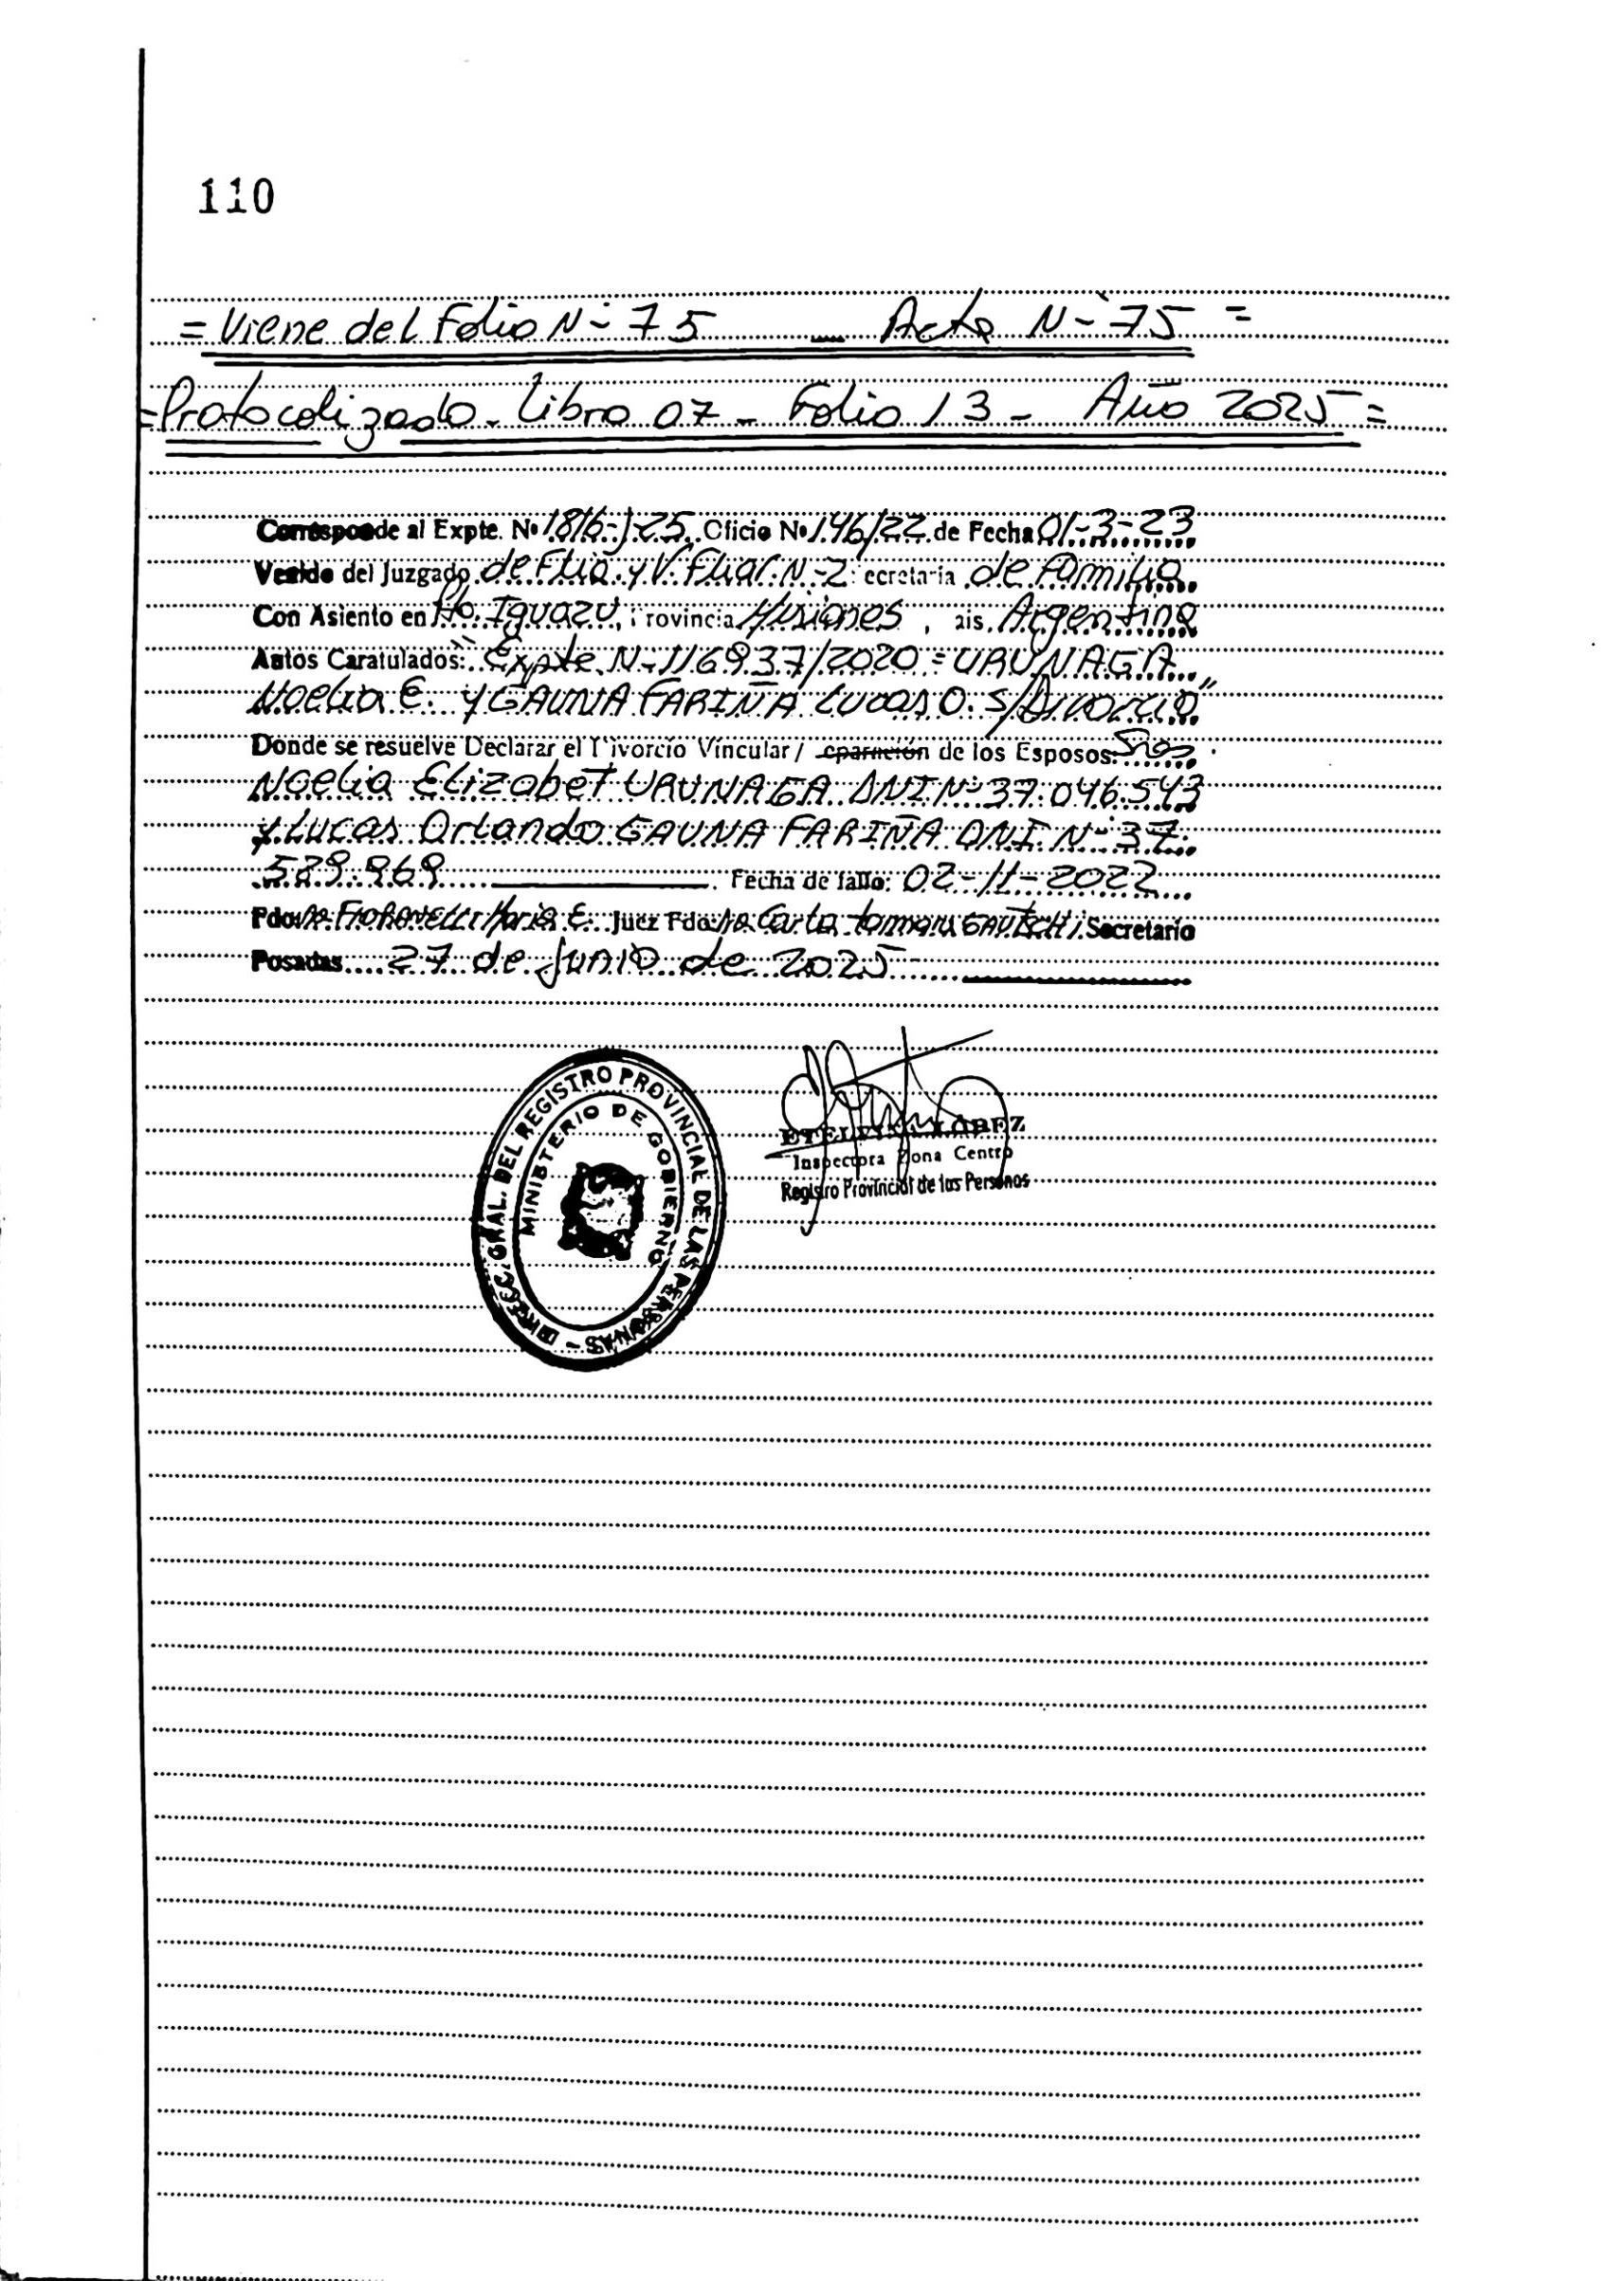 110
= Viene del Folio N- 75 — Acta N- 75 =
= Protocolizado - Libro 07 - Folio 13 - Año 2025 =
Corresponde al Expte. Nº 1816-J-25. Oficio Nº 146/22 de Fecha 01-3-23
Venido del Juzgado de Flia. y V. Fliar. N-2 ecretaria de Familia.
Con Asiento en Pto. Iguazu, rovincia Misiones, ais. Argentina
Autos Caratulados: "Expte. N- 116937/2020 = URUNAGA
Noelia E. y GAUNA FARIÑA Lucas O. S/Divorcio"
Donde se resuelve Declarar el Divorcio Vincular / eparación de los Esposos: Sres.
Noelia Elizabet URUNAGA DNI Nº 37.046.543
y Lucas Orlando GAUNA FARIÑA DNI. N- 37.
529.969 . Fecha de fallo: 02-11-2022
Fdo: Maria E. Juez Fdo: Carla Tamara Secretario
Posadas 27 de Junio de 2025
DIRECC. GRAL. DEL REGISTRO PROVINCIAL DE LAS PERSONAS -
MINISTERIO DE GOBIERNO
ETELVINA LOPEZ
Inspectora Zona Centro
Registro Provincial de las Personas